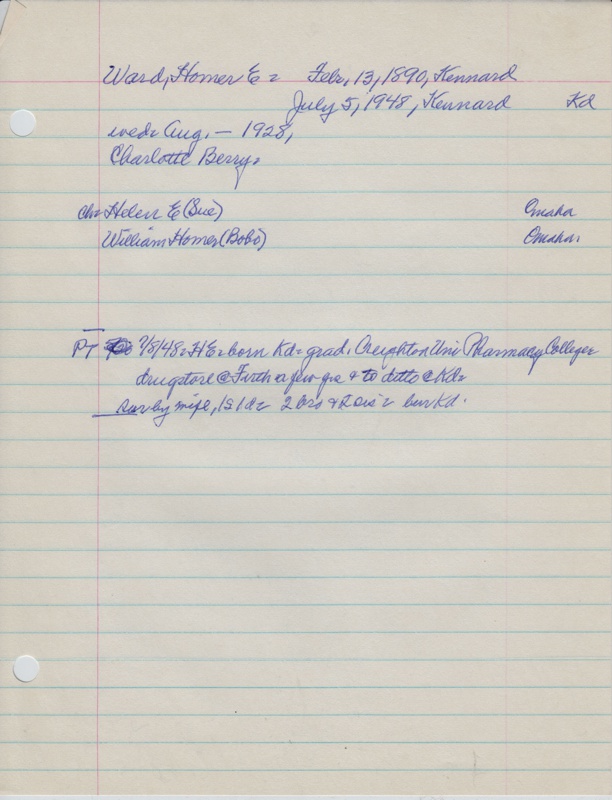 Ward, Homer E = Febr, 13, 1890, Kennard
July 5, 1948, Kennard Kd
wed= Aug. — 1928,
Charlotte Berry=
ch= Helen E (Sue) Omaha
William Homer (Bobo) Omaha.
PT 7/8/48= HE= born Kd= grad. Creighton Uni Pharmacy College=
drugstore @ Firth a few yrs & to ditto @ Kd=
sur by wife, 1s 1d= 2 bro & 2 sis = bur Kd.